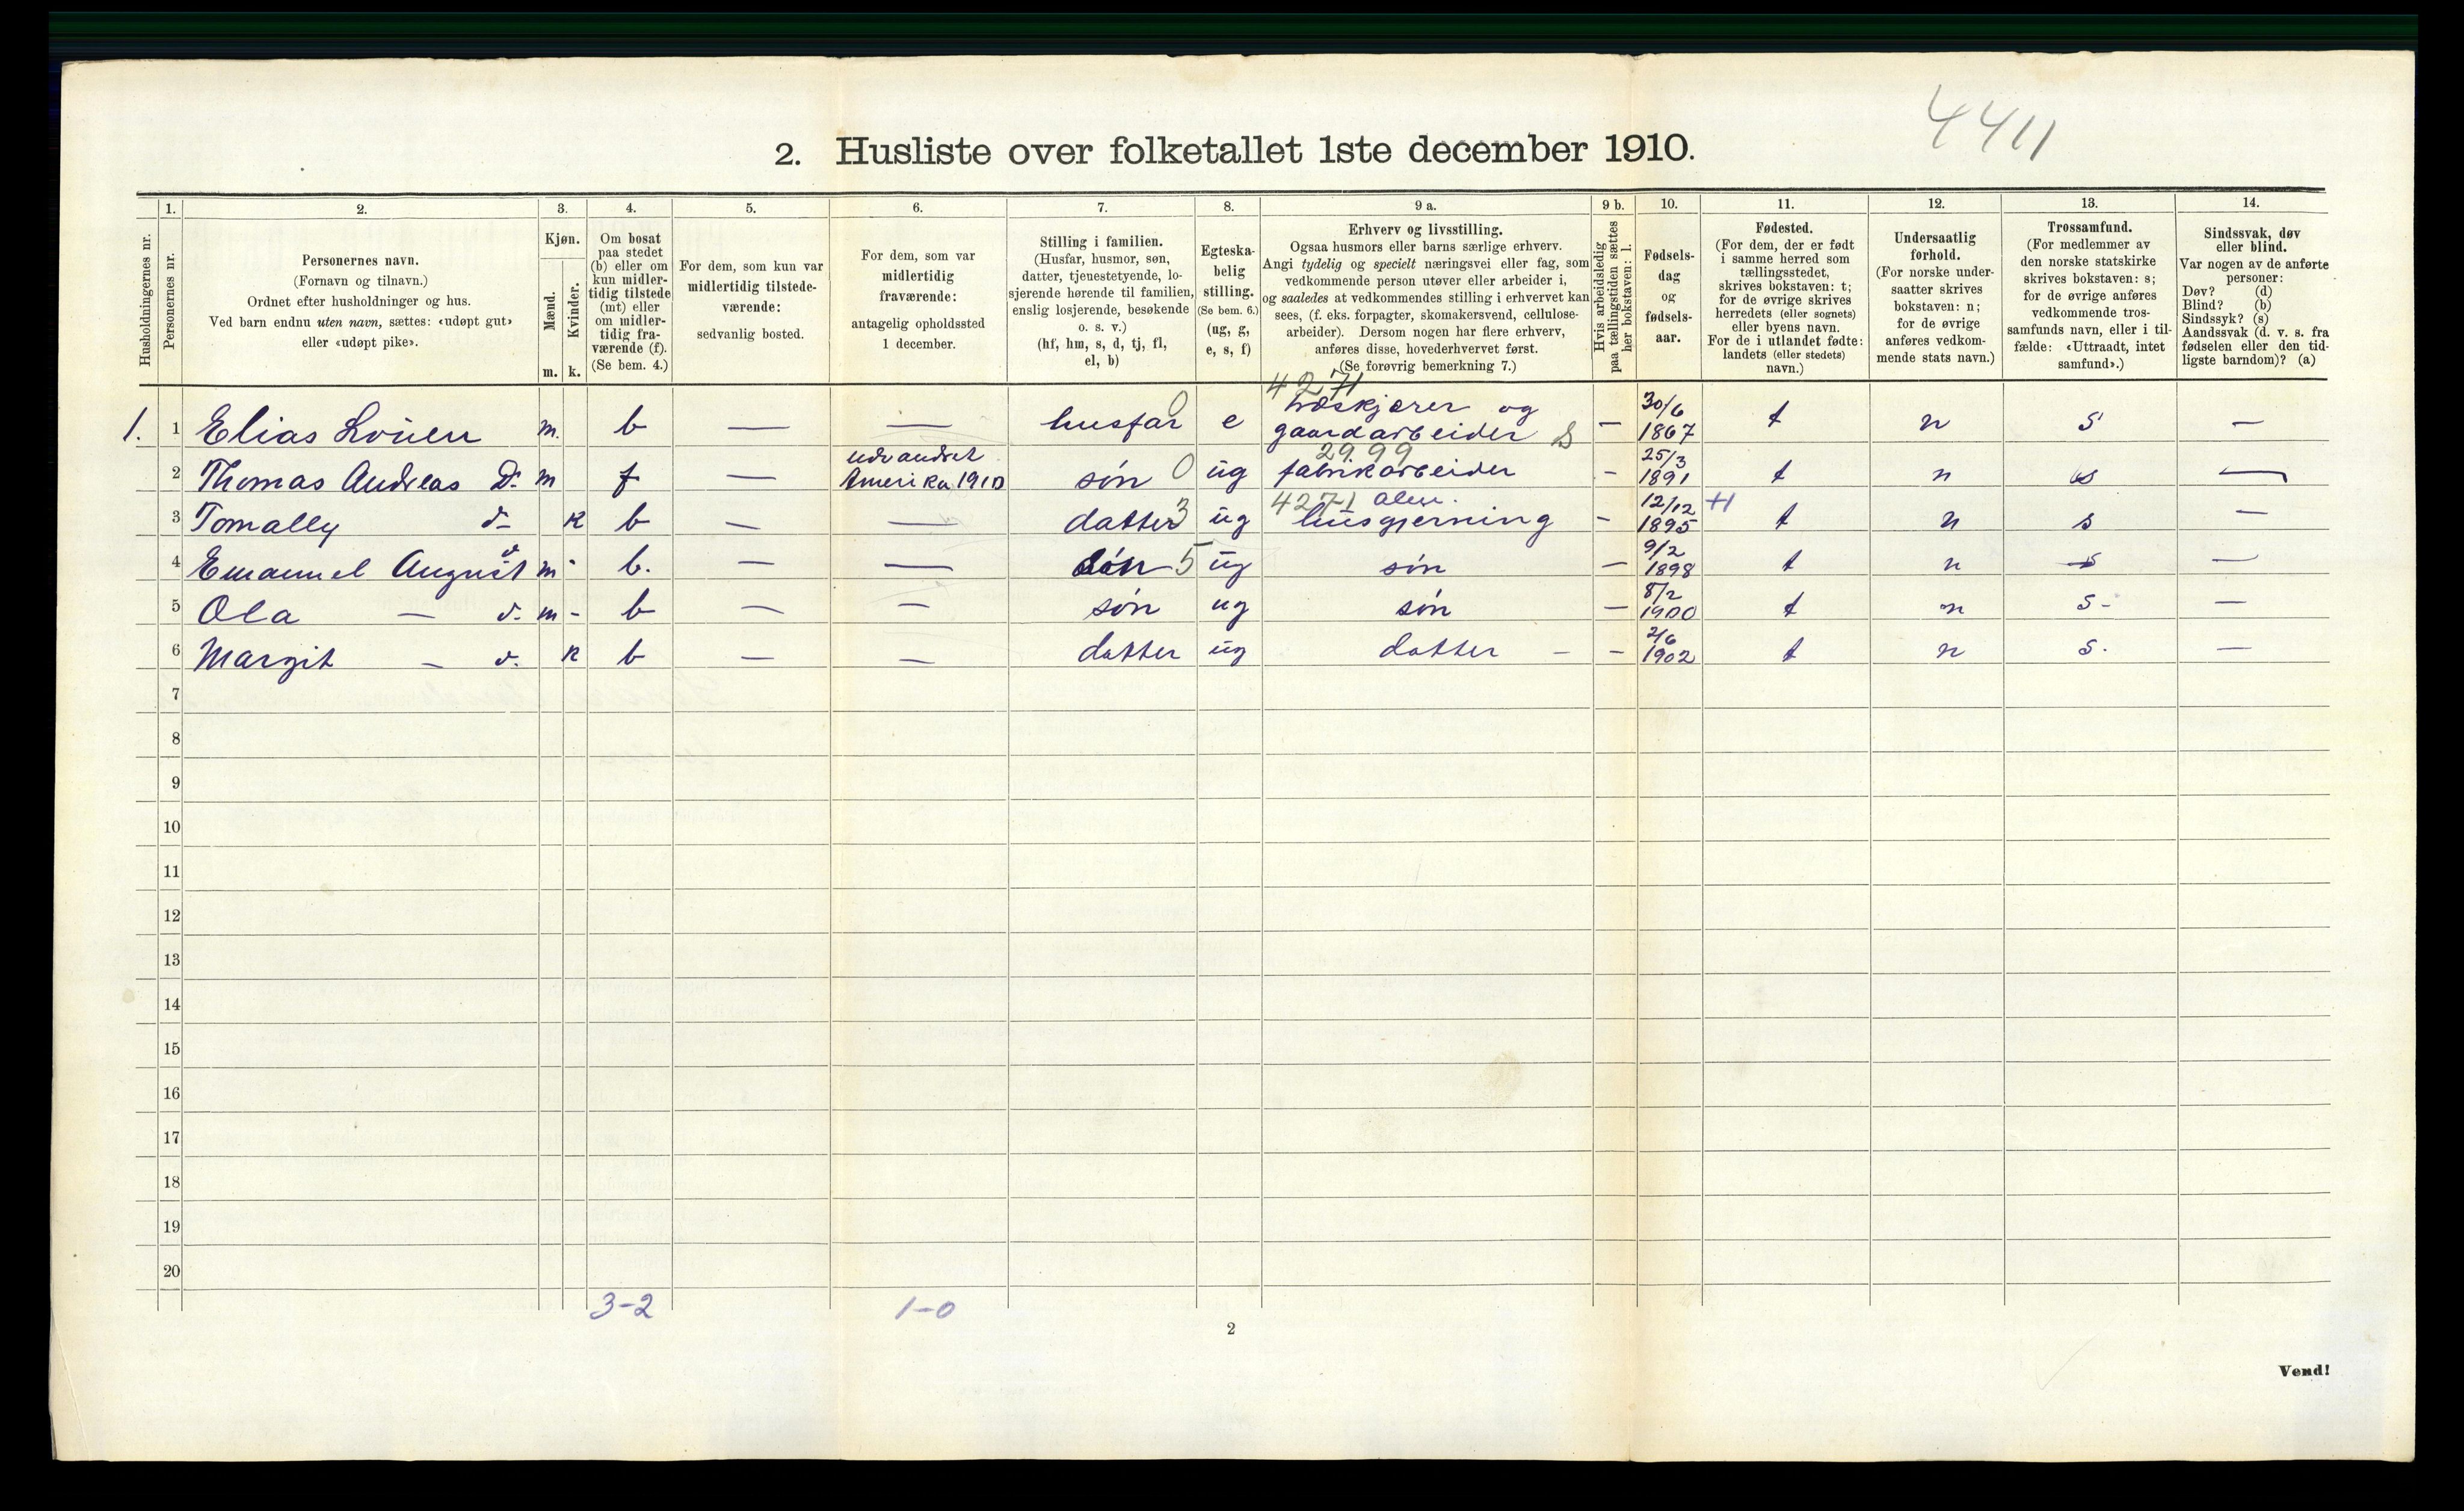 4411
2. Husliste over folketallet 1ste december 1910.
Husholdningernes nr.
1.
Personernes nr.
2.
Personernes navn.
(Fornavn og tilnavn.)
Ordnet efter husholdninger og hus.
Ved barn endnu uten navn, sættes: «udøpt gut»
eller «udøpt pike».
3.
Kjøn.
Mænd.
Kvinder.
m. k.
4.
Om bosat
paa stedet
(b) eller om
kun midler-
tidig tilstede
(mt) eller
om midler-
tidig fra-
værende (f).
(Se bem. 4.)
5.
For dem, som kun var
midlertidig tilstede-
værende:
sedvanlig bosted.
6.
For dem, som var
midlertidig
fraværende:
antagelig opholdssted
1 december.
7.
Stilling i familien.
(Husfar, husmor, søn,
datter, tjenestetyende, lo-
sjerende hørende til familien,
enslig losjerende, besøkende
o. s. v.)
(hf, hm, s, d, tj, fl,
el, b)
8.
Egteska-
belig
stilling.
(Se bem. 6.)
(ug, g,
e, s, f)
9 a.
Erhverv og livsstilling.
Ogsaa husmors eller barns særlige erhverv.
Angi tydelig og specielt næringsvei eller fag, som
vedkommende person utøver eller arbeider i,
og saaledes at vedkommendes stilling i erhvervet kan
sees, (f. eks. forpagter, skomakersvend, cellulose-
arbeider). Dersom nogen har flere erhverv,
anføres disse, hovederhvervet først.
(Se forøvrig bemerkning 7.)
9 b.
Hvis arbeidsledig
paa tællingstiden sættes
her bokstaven: l.
10.
Fødsels-
dag
og
fødsels-
aar.
11.
Fødested.
(For dem, der er født
i samme herred som
tællingsstedet,
skrives bokstaven: t;
for de øvrige skrives
herredets (eller sognets)
eller byens navn.
For de i utlandet fødte:
landets (eller stedets)
navn.)
12.
Undersaatlig
forhold.
(For norske under-
saatter skrives
bokstaven: n;
for de øvrige
anføres vedkom-
mende stats navn.)
13.
Trossamfund.
(For medlemmer av
den norske statskirke
skrives bokstaven: s;
for de øvrige anføres
vedkommende tros-
samfunds navn, eller i til-
fælde: «Uttraadt, intet
samfund».)
14.
Sindssvak, døv
eller blind.
Var nogen av de anførte
personer:
Døv? (d)
Blind? (b)
Sindssyk? (s)
Aandssvak (d. v. s. fra
fødselen eller den tid-
ligste barndom)? (a)
4271
1. 1 Elias m. b — — husfar 0 e og gaardarbeider — 30/6 1867 t n s —
2999
2 Thomas Andreas D. m f — Amerika 1910 søn 0 ug fabrikarbeider - 25/3 1891 t n s —
4271
3 Tomally d- k b — — datter 3 ug husgjerning - 12/12 1895 t n s —
4 Emanuel August d m - b. — — søn 5 ug søn — 9/2 1898 t n s —
5 Ola — d. m - b — — søn ug søn — 8/2 1900 t n s - —
6 Margit — d. k b — — datter ug datter - - 2/6 1902 t n s. —
7
8
9
10
11
12
13
14
15
16
17
18
19
20
3-2 1-0
2
Vend!